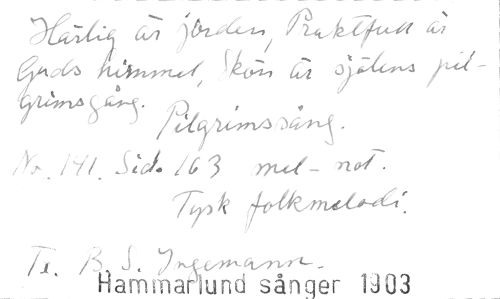 Härlig är jorden, Praktfull är
Guds himmel, Skön är själens pil-
grimsgång.
Pilgrimssång.
No. 141. Sid. 163 mel-not.
Tysk folkmelodi.
Te. B. S. Ingemann.
Hammarlund sånger 1903